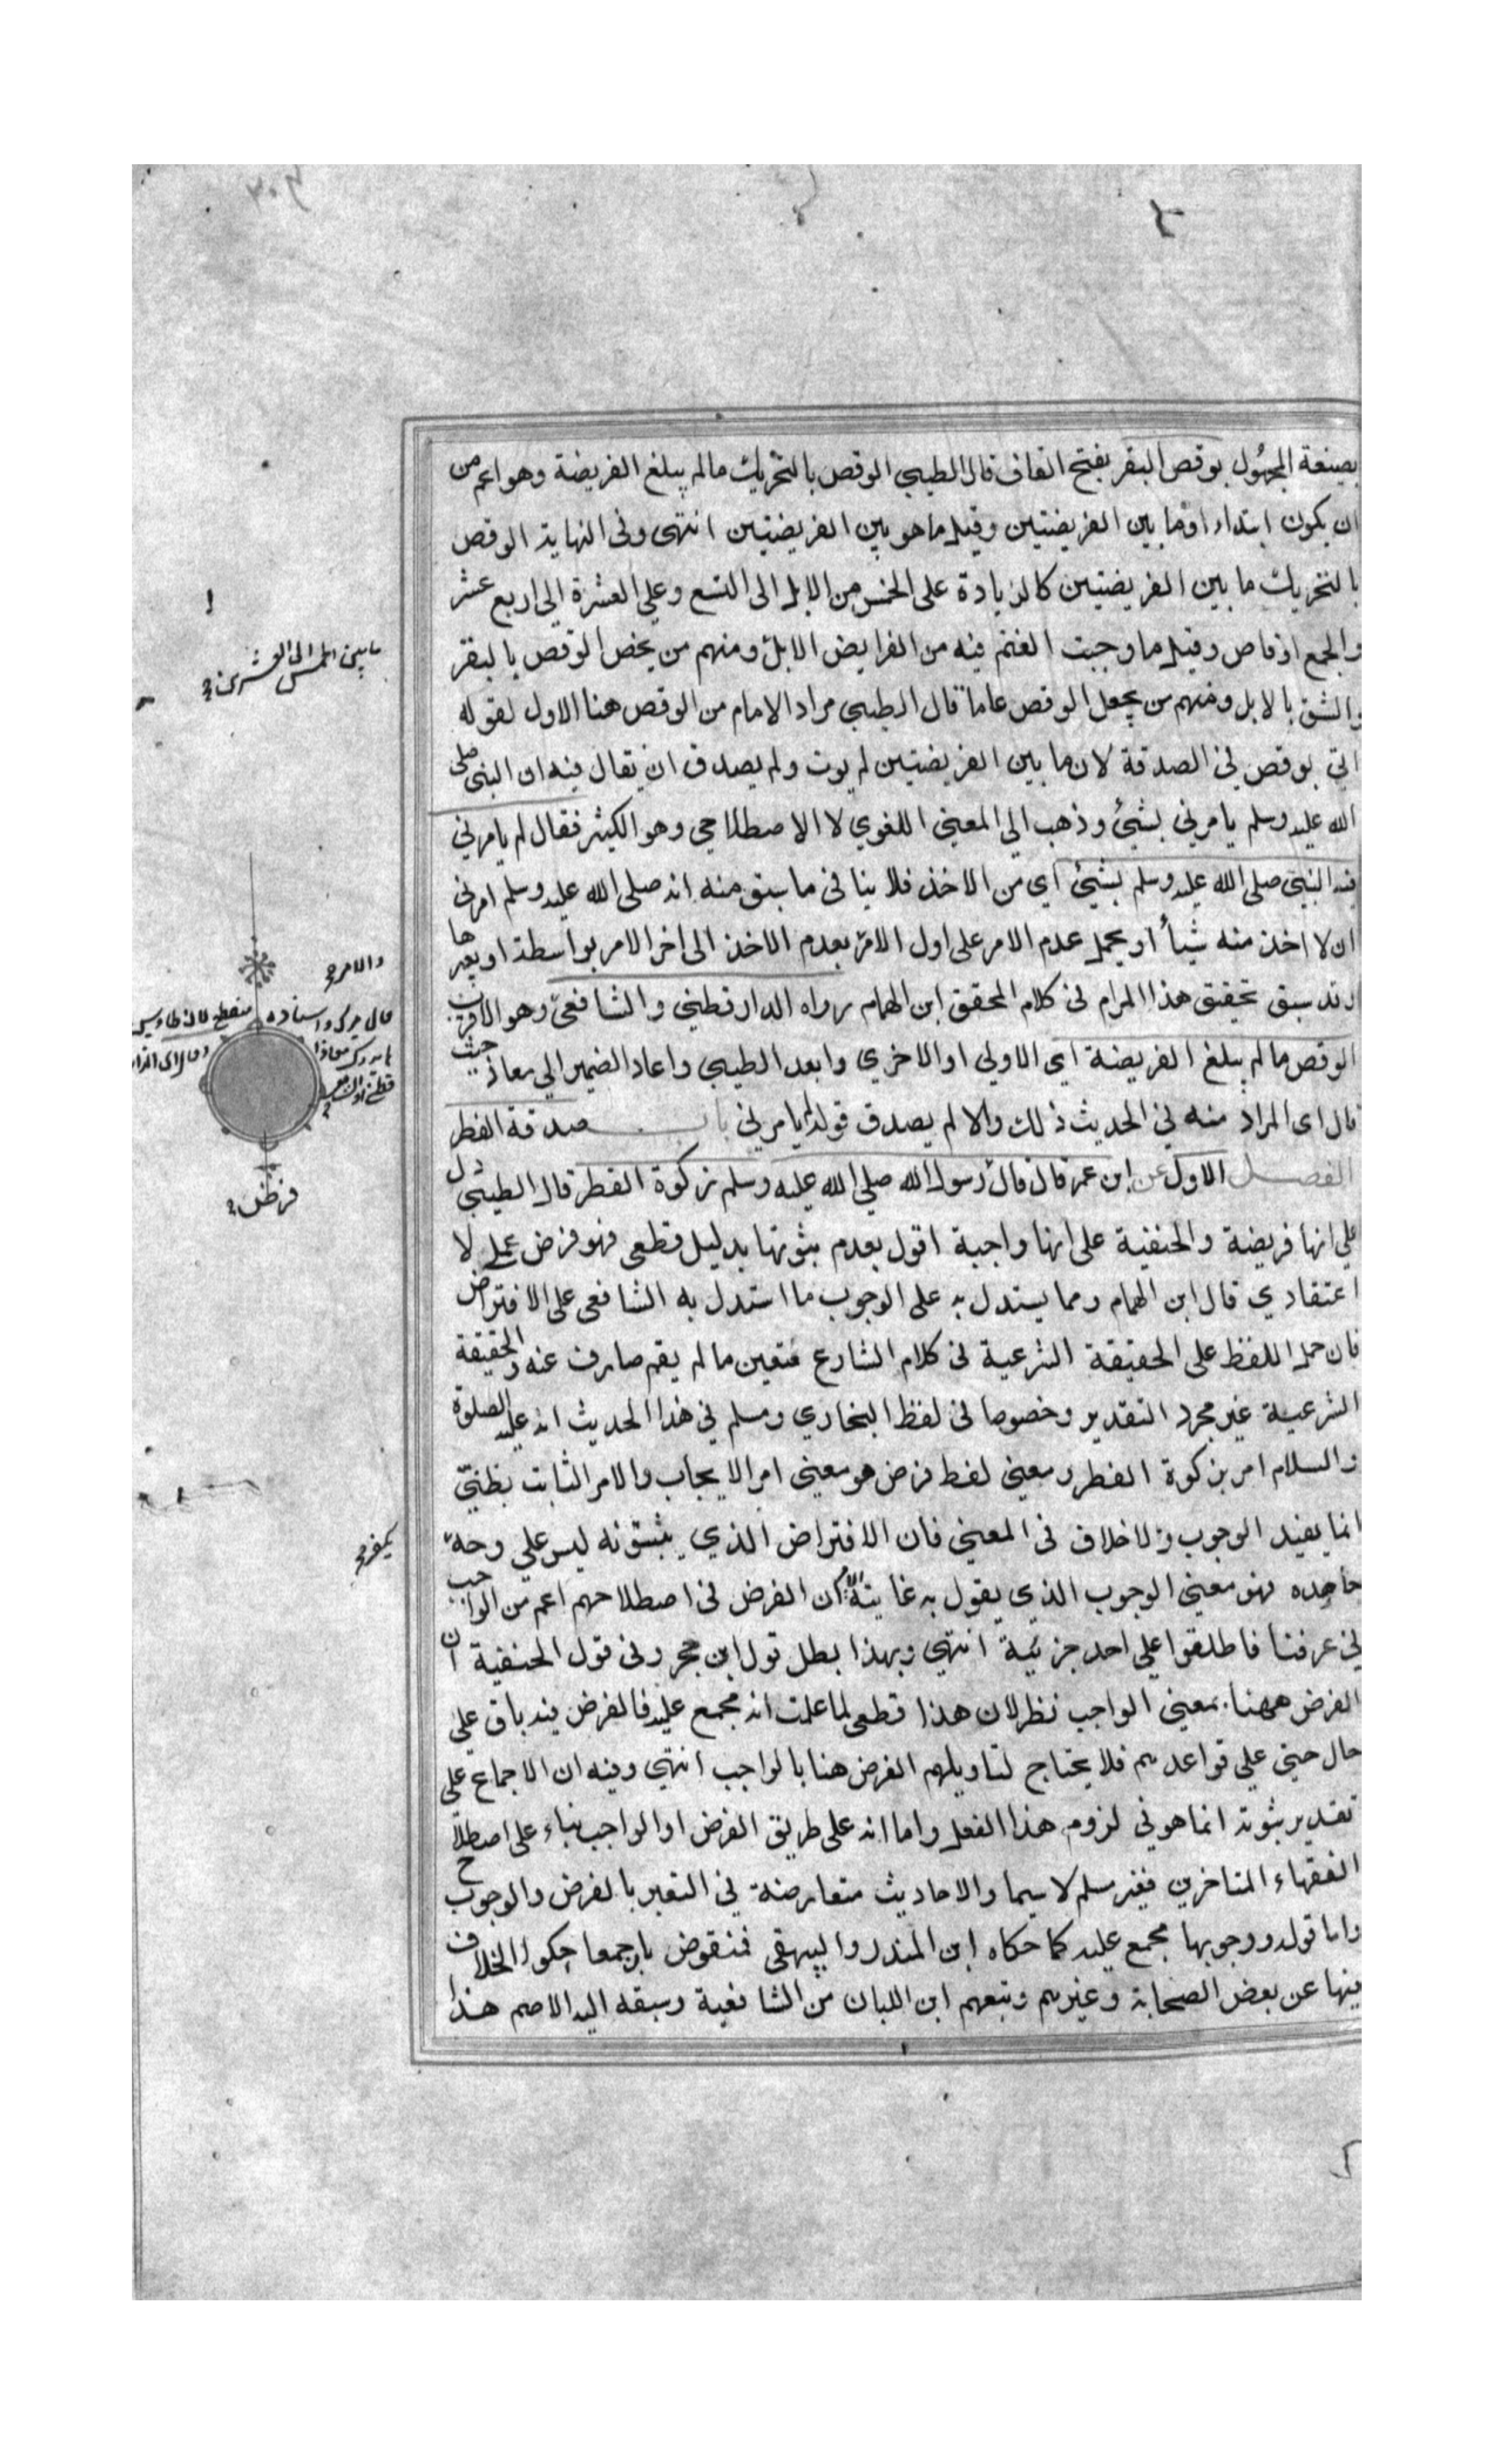 بصيغة المجهول بوقص البقر بفتح القاف قال الطيبي الوقص بالتحريك مالم يبلغ الفريضة وهو اعم من
ان يكون ابتداء او ما بين الفريضتين وقيل ما هو بين الفريضتين انتهى وفي النهاية الوقص
بالتحريك ما بين الفريضتين كالزيادة على الخمس من الابل الى التسع وعلى العشرة الى اربع عشر
والجمع اوقاص وقيل ما وجبت الغنم فيه من الفرايض الابل ومنهم من يخص الوقص بالبقر
والشنق بالابل ومنهم من يجعل الوقص عاما قال الطيبي مراد الامام من الوقص هنا الاول لقوله
اتي بوقص في الصدقة لان ما بين الفريضتين لم يوت ولم يصدق ان يقال فيه ان النبي صلى
الله عليه وسلم يامرني بشيئ وذهب الى المعنى اللغوي لا الاصطلاحي وهو الكثير فقال لم يامرني
فيه النبي صلى الله عليه وسلم بشيئ اي من الاخذ فلا ينافي ما سبق منه انه صلى الله عليه وسلم امرني
ان لا اخذ منه شيأ او يحمل عدم الامر على اول الامر بعدم الاخذ الى اخر الامر بواسطة او بغيرها
وقد سبق تحقيق هذا المرام في كلام المحقق ابن الهمام رواه الدارقطني والشافعي وهو الاقرب
الوقص مالم يبلغ الفريضة اي الاولي او الاخري وابعد الطيبي واعاد الضمير الى معاذ حيث
قال اى المراد منه في الحديث ذلك والا لم يصدق قوله لم يامرني باب صدقة الفطر
الفصل الاول عن ابن عمر قال قال رسول الله صلى الله عليه وسلم زكوة الفطر قال الطيبي دل
على انها فريضة والحنفية على انها واجبة اقول بعدم ثبوتها بدليل قطعي فهو فرض عملي لا
اعتقادي قال ابن الهمام ومما يستدل به على الوجوب ما استدل به الشافعي على الافتراض
فان حمل اللفظ على الحقيقة الشرعية في كلام الشارع متعين ما لم يقم صارف عنه والحقيقة
الشرعية غير مجرد التقدير وخصوصا في لفظ البخاري ومسلم في هذا الحديث انه عليه الصلوة
والسلام امر بزكوة الفطر ومعنى لفظ فرض هو معنى امر الايجاب والامر الثابت بظني
انما يفيد الوجوب ولا خلاف في المعنى فان الافتراض الذي يثبتونه ليس على وجه
جاحده فهو معنى الوجوب الذي يقول به غايته الامر ان الفرض في اصطلاحهم اعم من الواجب
في عرفنا فاطلقوا على احد جزئية انتهي وبهذا بطل قول ابن حجر وفي قول الحنفية ان
الفرض ههنا بمعنى الواجب نظر لان هذا قطعي لما علمت انه مجمع عليه فالفرض فيه باق على
حال حتى على قواعدهم فلا يحتاج لتاويلهم الفرض هنا بالواجب انتهي وفيه ان الاجماع على
تقدير ثبوته انما هو في لزوم هذا الفعل واما انه على طريق الفرض او الواجب بناء على اصطلاح
الفقهاء المتاخرين فغير مسلم لا سيما والاحاديث متعارضة في التعبير بالفرض والوجوب
واما قوله ووجوبها مجمع عليه كما حكاه ابن المنذر والبيهقي فمنقوض بان جمعا حكوا الخلاف
فيها عن بعض الصحابة وغيرهم وتبعهم ابن اللبان من الشافعية وسبقه اليه الاصم هذا
ما بين الخمس الى العشرين
والامر
قال ميرك واسناده منقطع فان طاوس
لم يدرك معاذا
فرض
يكفر